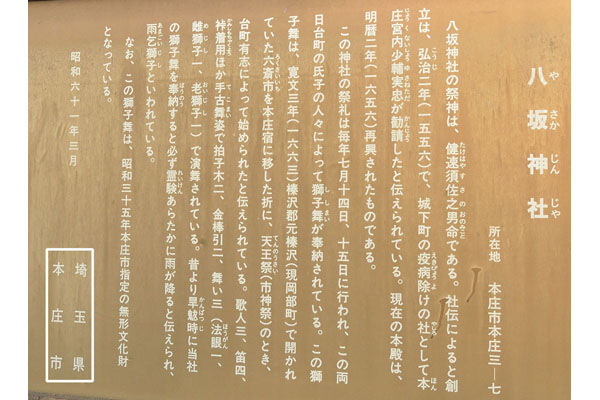 八坂神社
所在地 本庄市本庄三―七
八坂神社の祭神は、健速須佐之男命である。社伝によると創
立は、弘治二年(一五五六)で、城下町の疫病除けの社として本
庄宮内少輔実忠が勧請したと伝えられている。現在の本殿は、
明暦二年(一六五六)再興されたものである。
この神社の祭礼は毎年七月十四日、十五日に行われ、この両
日台町の氏子の人々によって獅子舞が奉納されている。この獅
子舞は、寛文三年(一六六三)榛沢郡元榛沢(現岡部町)で開かれ
ていた六斎市を本庄宿に移した折に、天王祭(市神祭)のとき、
台町有志によって始められたと伝えられている。歌人三、笛四、
裃着用ほか手古舞姿で拍子木二、金棒引二、舞い三(法眼一、
雌獅子一、老獅子一)で演舞されている。昔より旱魃時に当社
の獅子舞を奉納すると必ず霊験あらたかに雨が降ると伝えられ、
雨乞獅子といわれている。
なお、この獅子舞は、昭和三十五年本庄市指定の無形文化財
となっている。
昭和六十一年三月
埼玉県
本庄市